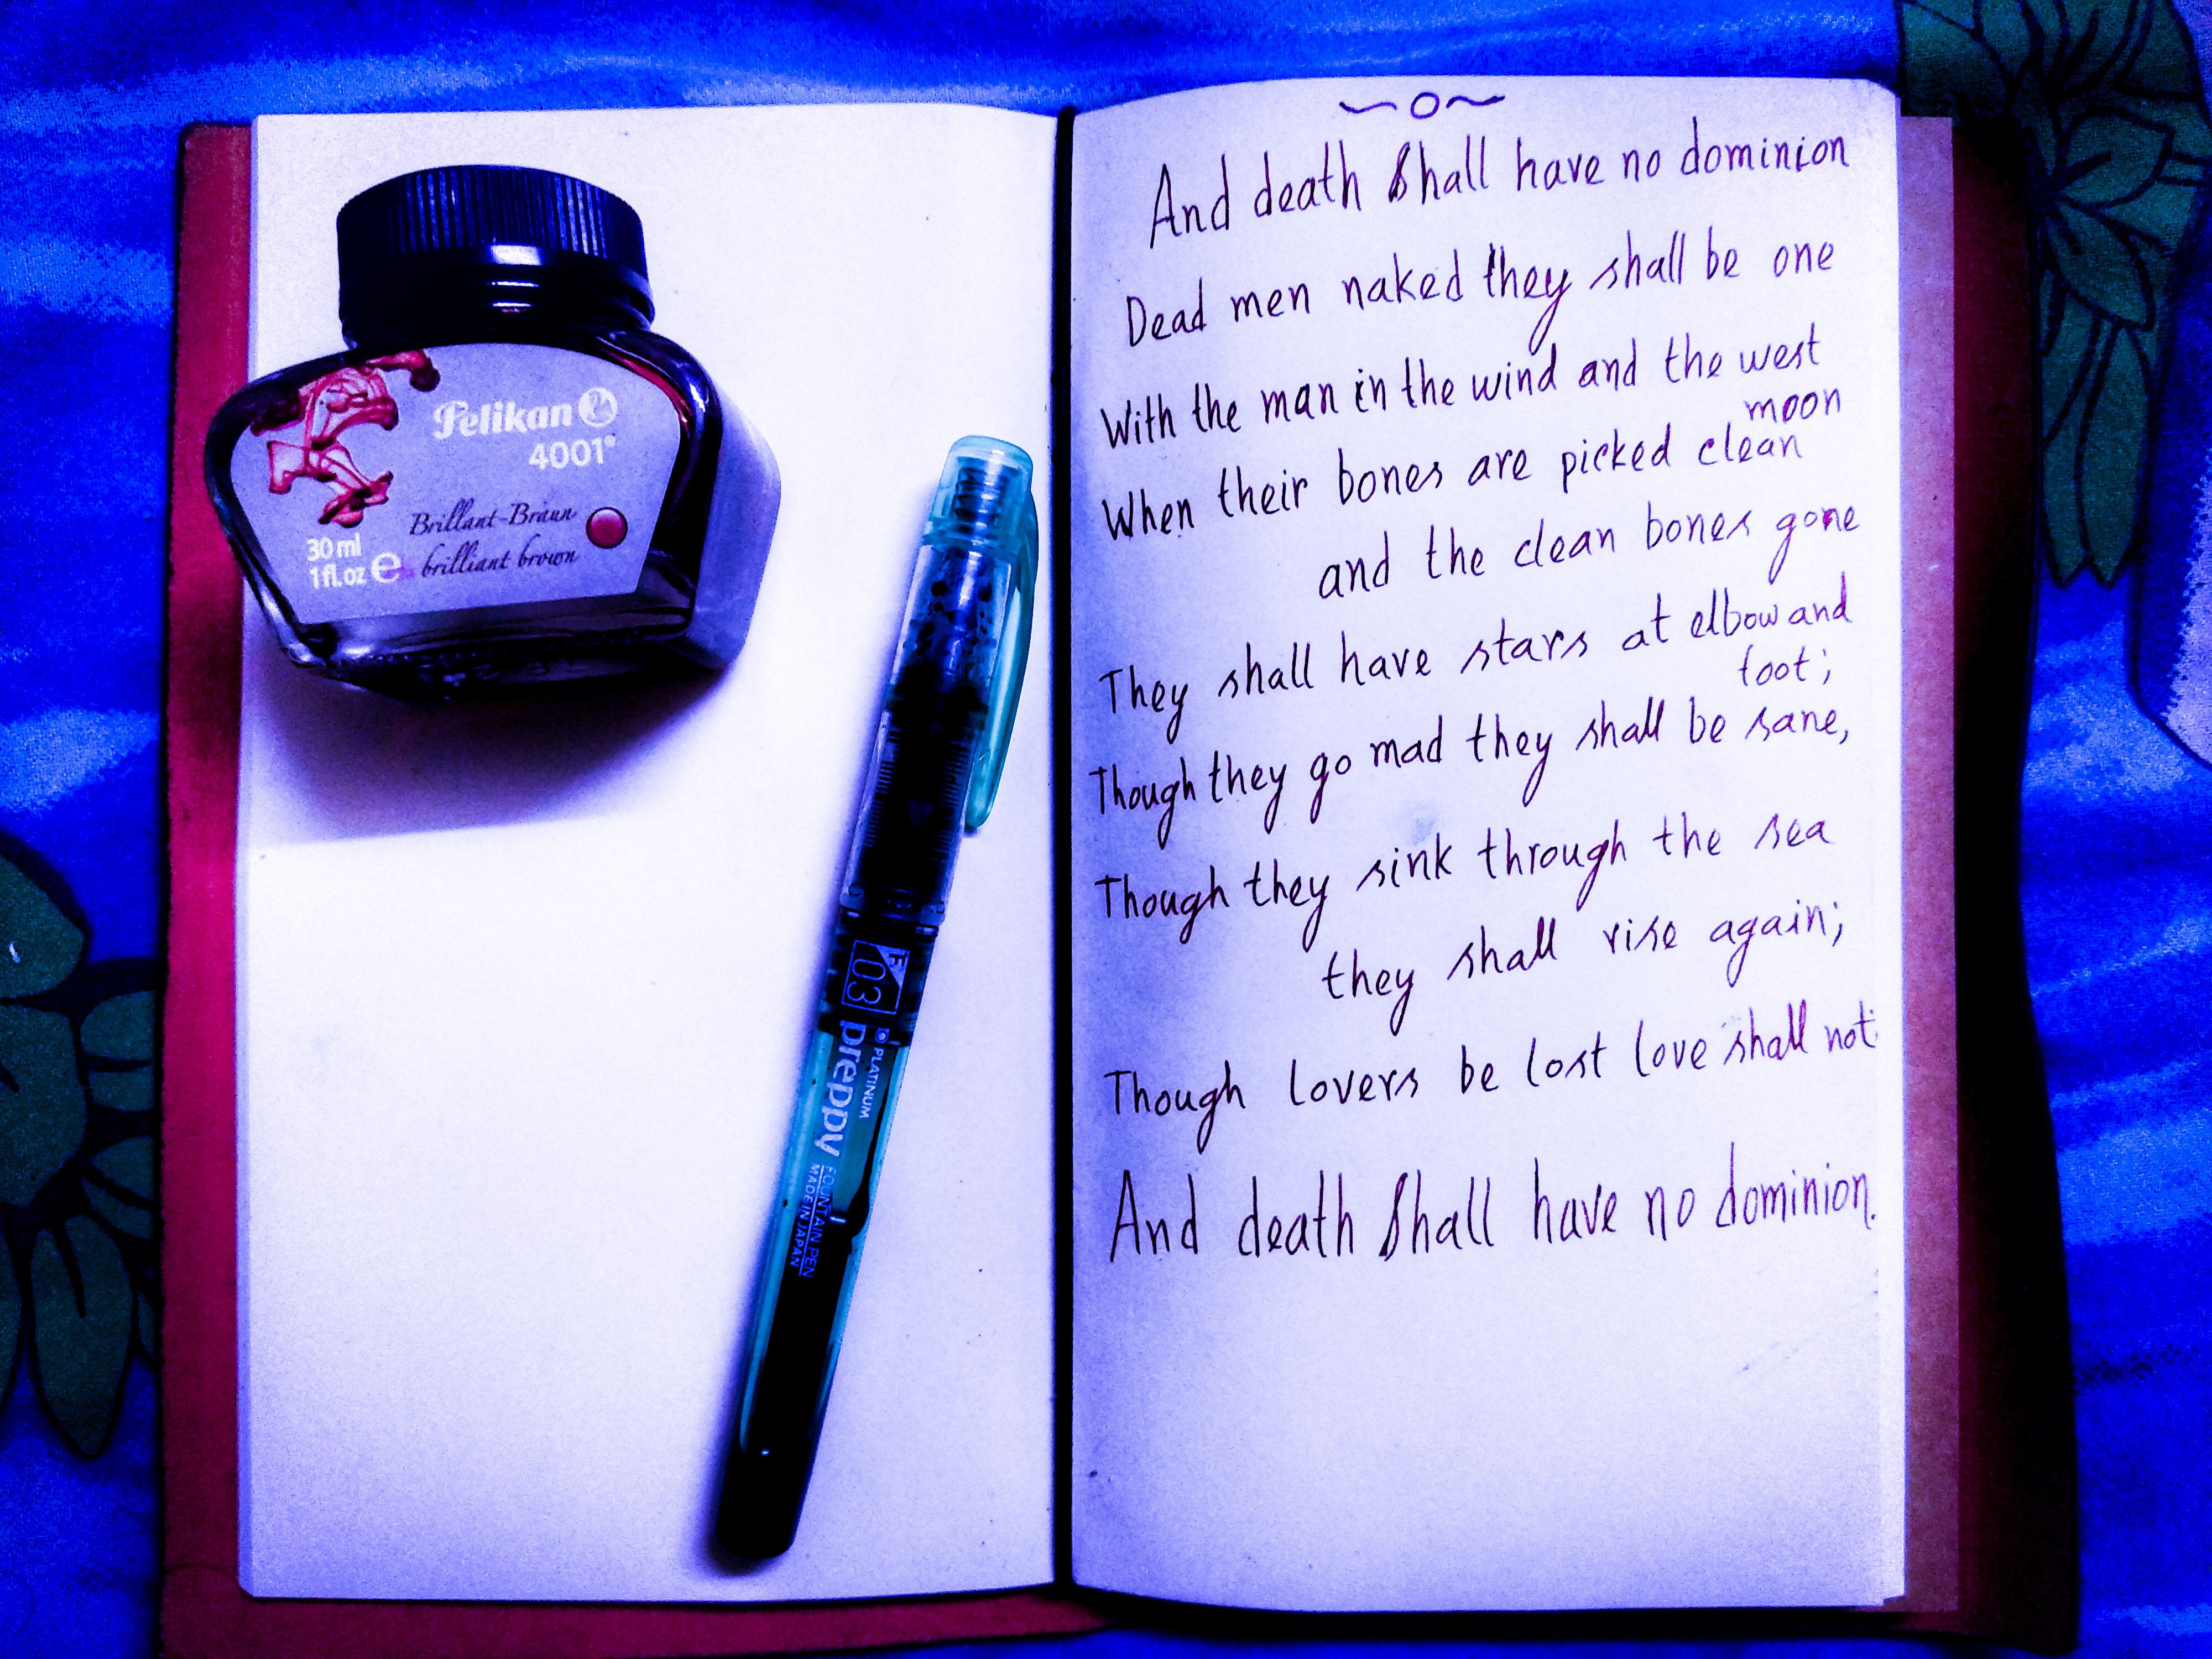 Pelikan
4001®
Brillant-Braun
brilliant brown
30 ml
1 fl.oz e
F
03
PLATINUM
preppy
FOUNTAIN PEN
MADE IN JAPAN
And death shall have no dominion
Dead men naked they shall be one
With the man in the wind and the west
moon
When their bones are picked clean
and the clean bones gone
They shall have stars at elbow and
foot;
Though they go mad they shall be sane,
Though they sink through the sea
they shall rise again;
Though lovers be lost love shall not
And death shall have no dominion.